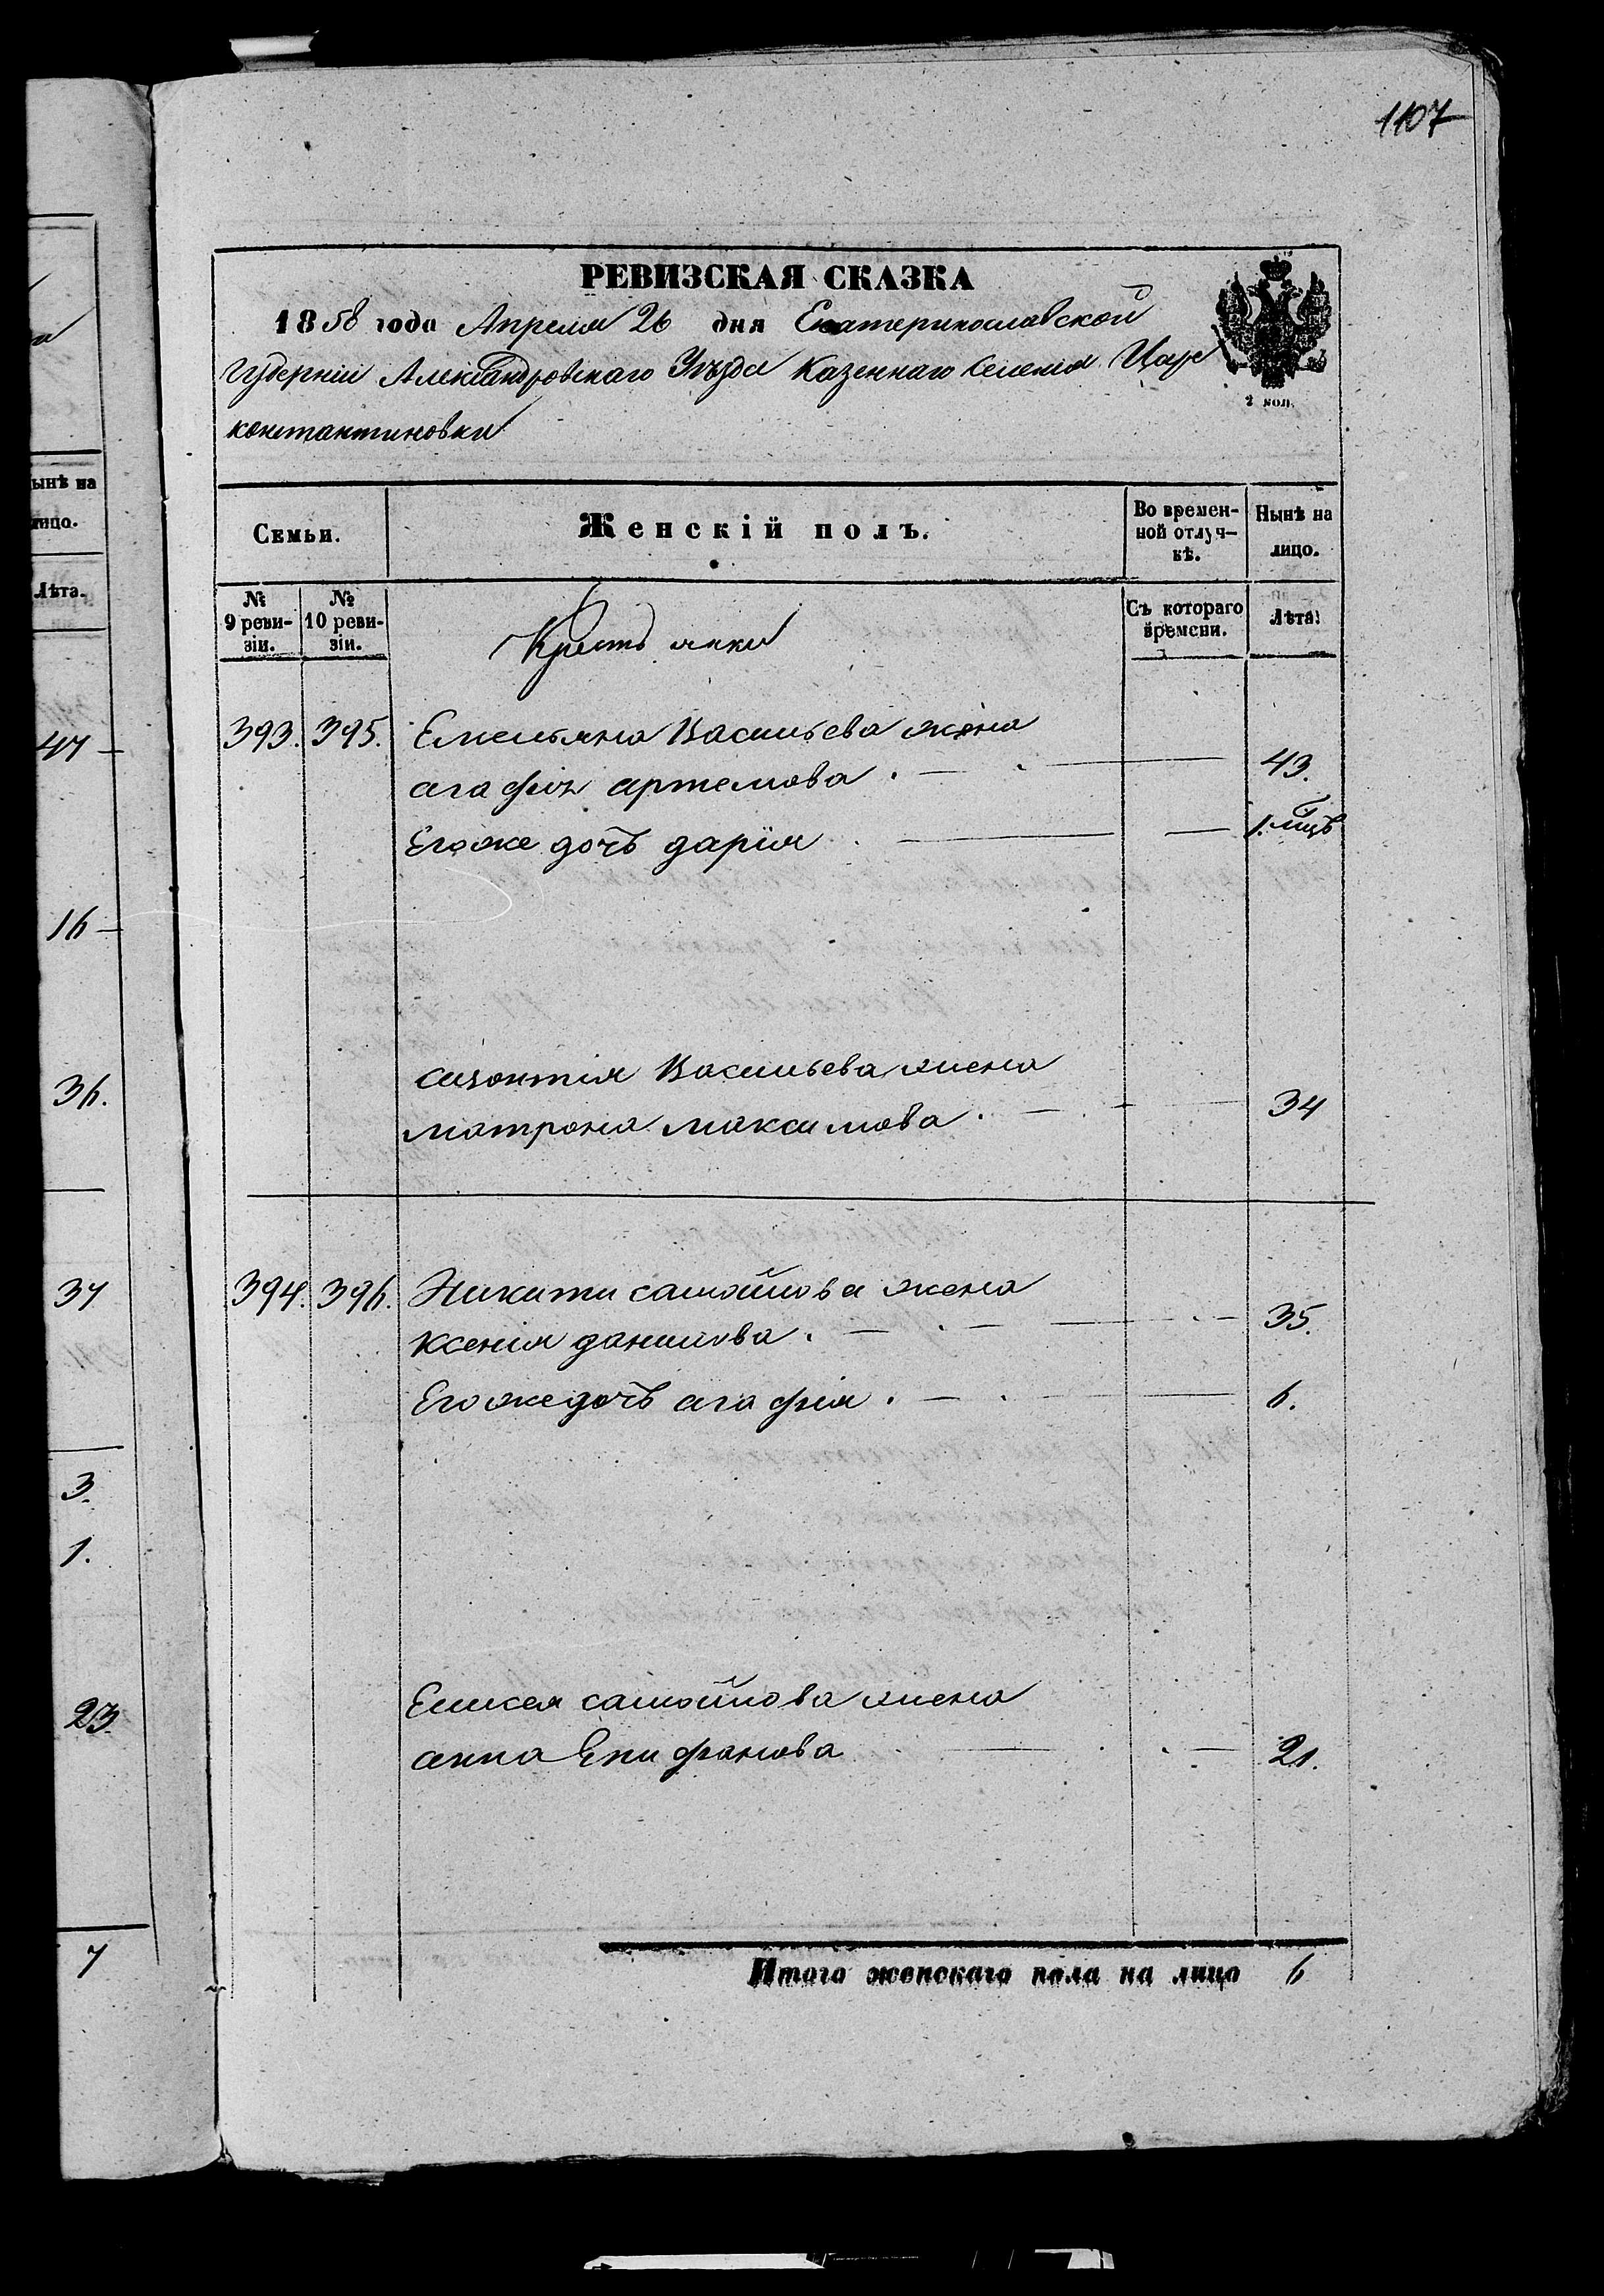 1107
РЕВИЗСКАЯ СКАЗКА
1858 года Апреля 26 дня Екатеринославской
Губерніи Александровскаго Уѣзда Казеннаго Селенія Царе
константиновки
2 коп.
Семьи.
Женскій полъ.
Во времен-
ной отлуч-
кѣ.
Нынѣ на
лицо.
№
9 реви-
зіи.
№
10 реви-
зіи.
Крестьянки
Съ котораго
времени.
Лѣта.
393. 395. Емельяна Васильева жена
агафія артемова 43.
Егоже дочь дарія 1. мцъ
сизонтія Васильева жена
матрона максимова 34
394. 396. Никити самойлова жена
Ксенія данилова 35.
Егоже дочь агафія 6.
Елисея самойлова жена
анна Епифанова 21.
Итого женскаго пола на лицо 6
ынѣ на
лицо.
Лѣта.
47
16
36.
37
3.
1.
23
7